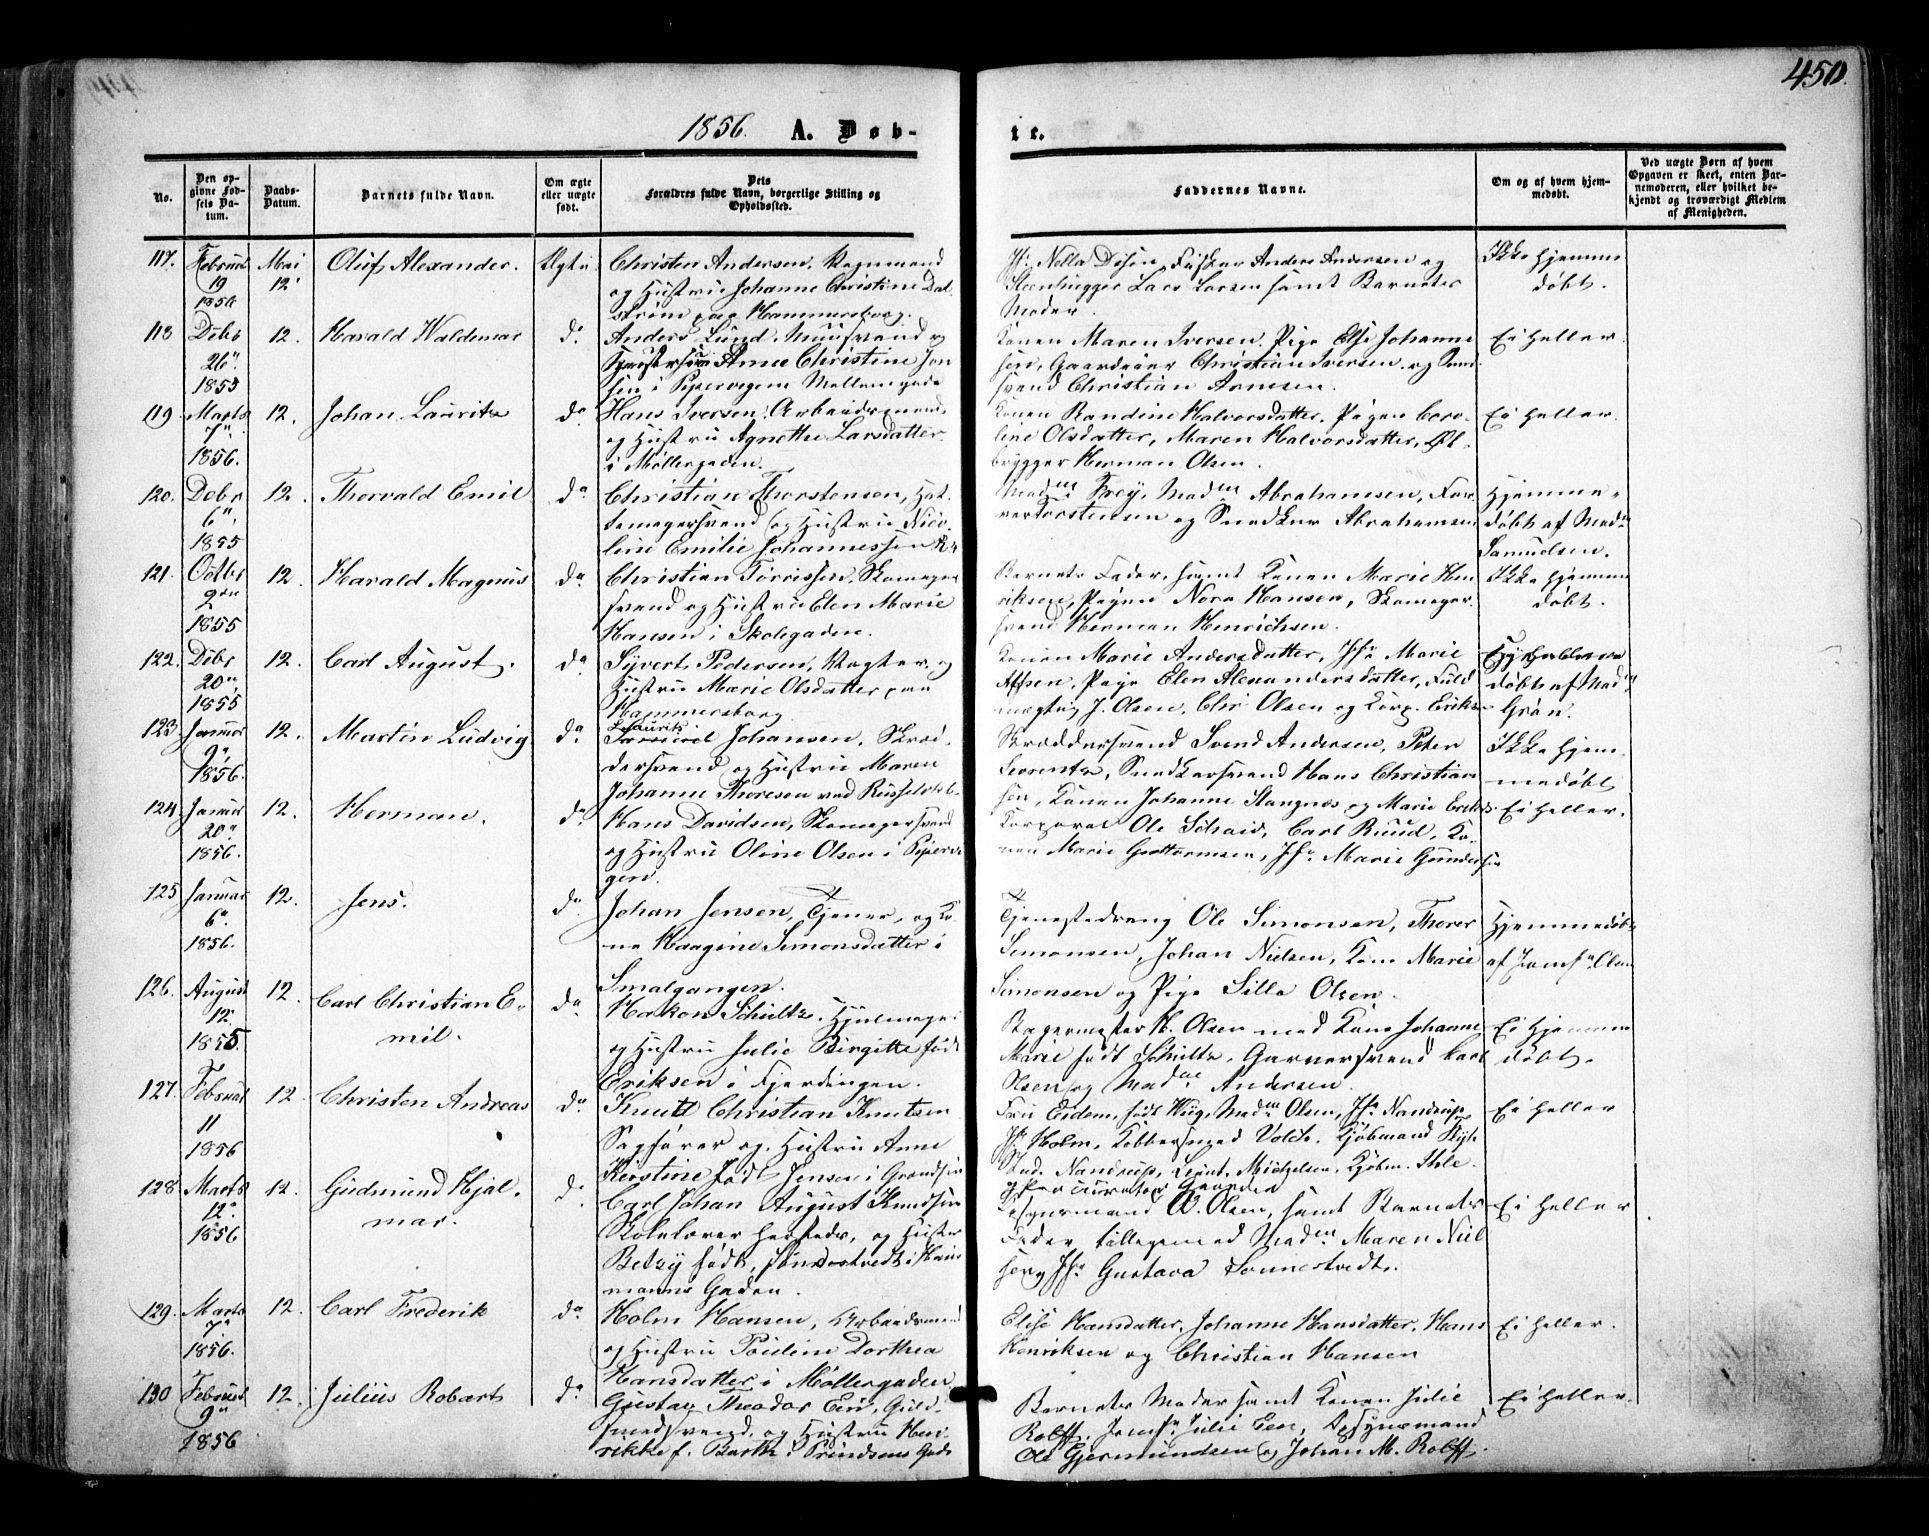 450.
1856. A. Døb-
te.
No.
Den op-
givne Fød-
sels Da-
tum.
Daabs-
Datum.
Barnets fulde Navn.
Om ægte
eller uægte
født.
Dets
Forældres fulde Navn, borgerlige Stilling og
Opholdssted.
Faddernes Navne.
Om og af hvem hjem-
medøbt.
Ved uægte Børn af hvem
Opgaven er skeet, enten Bar-
nemoderen, eller hvilket be-
kjendt og troværdigt Medlem
af Menigheden.
117. Februar 19 1856
Mai 12"
Oluf Alexander.
Ægte
Christen Andersen,
og Hustru Johanne Christine
paa Hammersborg.
Fisker Anders Andersen og
Steenhugger Lars Larsen samt Barnets
Moder.
Ikke hjemme
døbt.
118 Debr 26" 1855
12.
Harald Waldemar
do
Anders Lund, Muursvend og
Hustru Anne Christine Jon
sen i Pipervigen Mellemgade
Konen Maren Iversen, Pige Else Johanne
Gaardeier Christian Iversen og
svend Christian Arnesen.
Ei heller.
119. Marts 7" 1856.
12.
Johan Lauritz
do
Hans Iversen, Arbeidsmand,
og Hustru Agnethe Larsdatter
i Møllergaden.
Konen Randine Halvorsdatter, Pigen Caro-
line Olsdatter, Maren Halvorsdatter, Øl-
brygger Herman Olsen.
Ei heller.
120. Debr 6" 1855
12.
Thorvald Emil
do
Christian Thorstensen, Hat-
temagersvend og Hustru Nico-
line Emilie Johannessen
Madm Frey, Madm Abrahamsen,
Torstensen og Snedker Abrahamsen
Hjemme-
døbt af Madm
Samuelsen.
121. Octbr 2den 1855
12.
Harald Magnus
do
Christian Torrissen, Skomager
svend og Hustru Elen Marie
Hansen i Skolegaden.
Barnets Fader, samt Konen Marie Hen
riksen, Pigen Nora Hansen, Skomager
svend Herman Henrichsen.
Ikke hjemme
døbt.
122. Debr 20" 1855
12.
Carl August.
do
Syvert Pedersen, Vægter, og
Hustru Marie Olsdatter paa
Hammersborg
Konen Marie Andersdatter, Jfr Marie
Pige Elen Alexandersdatter, Fuld
mægtig J. Olsen, Chr Olsen og Korp. Eriksen
Hjemme
døbt af Madm
Grøn.
123 Januar 9" 1856.
12.
Martin Ludvig
do
Lauritz
Johansen, Skræd-
dersvend og Hustru Maren
Johanne Thoresen ved Russeløkb.
Skræddersvend Svend Andersen, Peter
Lorentz, Snedkersvend Hans Christian
sen, Konen Johanne Stangnes og Marie Eriks.
Ikke hjem-
medøbt
124 Januar 20" 1856.
12.
Herman.
do
Hans Davidsen, Skomagersvend
og Hustru Oline Olsen i Piperv
igen.
Korporal Ole Schaw, Carl Ruud, Ko-
nen Marie Guttormsen, Jfr Marie Gundersen
Ei heller.
125 Januar 6" 1856.
12.
Jens.
do
Johan Jensen, Tjener, og Ko-
ne Kaagine Simonsdatter i
Smalgangen.
Tjenestedreng Ole Simonsen, Thorer
Simonsen, Johan Nielsen, Kone Marie
Simonsen og Pige Silla Olsen.
Hjemmedøbt
af Jomfr Olsen
126. August 12. 1855.
12.
Carl Christian E-
mil.
do
Hakon Schultz, Hjulmager
og Hustru Julie Birgitte født
Eriksen i Fjerdingen.
Bagermester H. Olsen med Kone Johanne
Marie født Schultz, Garversvend Carl
Olsen og Madme Andersen.
Ei hjemme
døbt.
127. Februar 11 1856
12.
Christen Andreas
do
Knutz Christian Knutsen
Sagfører og Hustru Ane
Kirstine født Jensen i
Fru Eidem, født Wiig, Madm Olsen, Jfr Nandrup,
Jfr Holm, Kobbersmed Voldt, Kjøbmand
Stud. Nandrup, Michelsen, Kjøbm. Ihle
og Procurator
Ei heller
128 Marts 12" 1856
12.
Gudmund Hjal-
mar.
do
Carl Johan August Knudsen
Skolelærer og Hustru
Betzy født Sønnestvedt i
manns Gaden.
W. Olsen, samt Barnets
Fader tilligemed Madm Maren Niel
sen, Jfr Gustava Sonnestvedt.
Ei heller
129. Marts 7" 1856.
12.
Carl Frederik
do
Holm Hansen, Arbeidsmand
og Hustru Pauline Dorthea
Hansdatter i Møllergaden
Elise Hansdatter, Johanne Hansdatter, Hans
Henriksen og Christian Hansen
Ei heller.
130 Februar 9" 1856
12.
Julius Robart
do
Gustav Theodor Een, Guld-
smedsvend, og Hustru Hen-
rikke f. Barth i Prindsens Gade
Barnets Moder samt Konen Julie
Rolff, Jomfr Julie Een,
Ole Gjermundsen og Johan M. Rolff.
Ei heller.